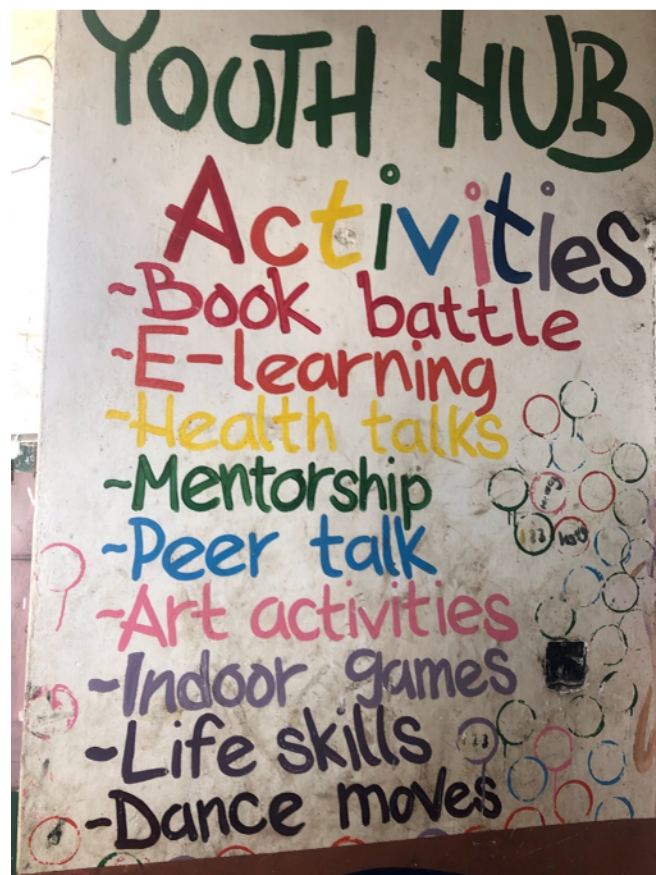 YOUTH HUB
Activities
~Book battle
~E-learning
~Health talks
~Mentorship
~Peer talk
~Art activities
~Indoor games
~Life skills
~Dance moves